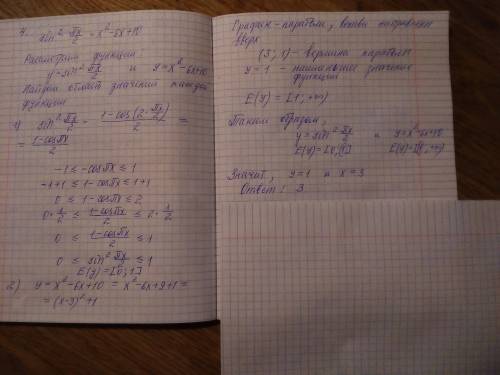 4. sin² πx/2 = x² - 6x + 10
Рассмотрим функции
y = sin² πx/2 и y = x² - 6x + 10
Найдем область значений каждой
функции
1) sin² πx/2 = 1 - cos(2·πx/2)/2 =
= 1 - cosπx/2
-1 ≤ -cosπx ≤ 1
-1+1 ≤ 1 - cosπx ≤ 1+1
0 ≤ 1 - cosπx ≤ 2
0·1/2 ≤ 1 - cosπx/2 ≤ 2·1/2
0 ≤ 1 - cosπx/2 ≤ 1
0 ≤ sin² πx/2 ≤ 1
E(y) = [0; 1]
2) y = x² - 6x + 10 = x² - 6x + 9 + 1 =
= (x-3)² + 1
График - парабола, ветви направлены
вверх
(3; 1) - вершина параболы
y = 1 - наименьшее значение
функции
E(y) = [1; +∞)
Таким образом,
y = sin² πx/2 и y = x² - 6x + 10
E(y) = [0; 1] E(y) = [1; +∞)
Значит, y = 1 и x = 3
Ответ: 3